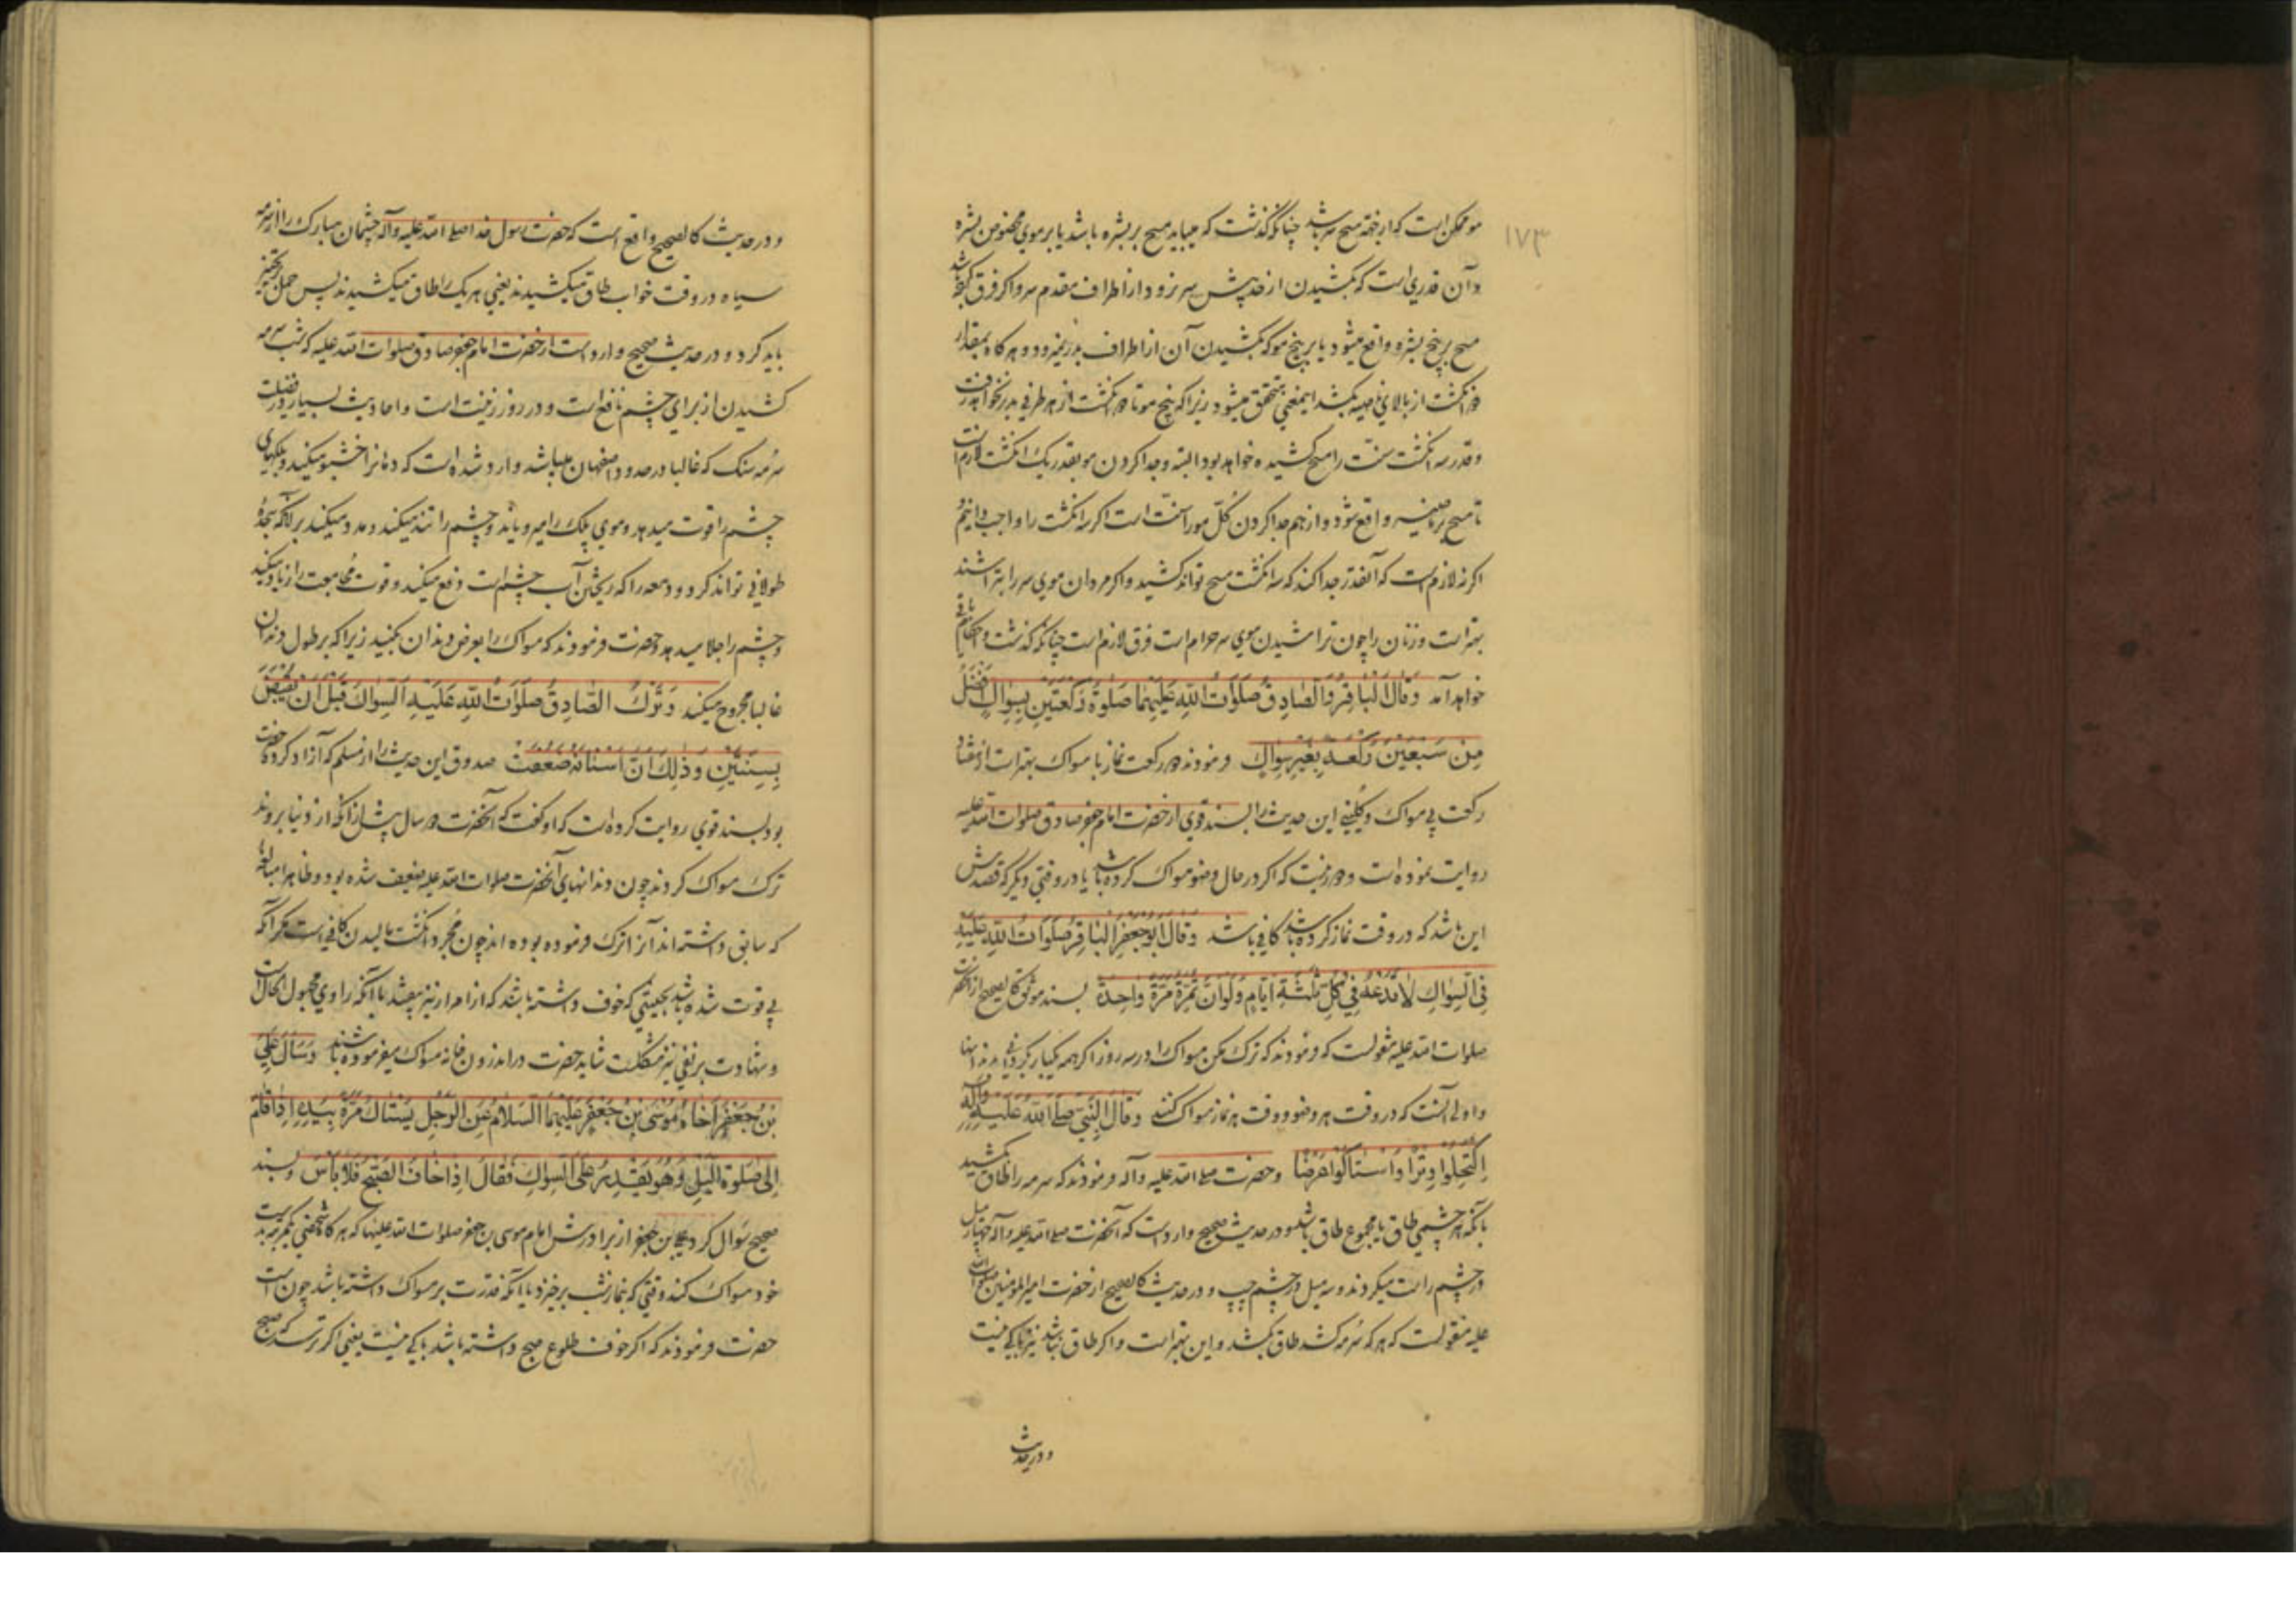 ۱۷۳
مو ممکن است که از خفته مسح باشد چنانکه گذشت که میباید مسح بر بشره باشد یا بر موی مخصوص بشره
و آن قدری است که بکشیدن از حد پیش سر نرود از اطراف مقدم سر و اکر فرق
مسح بر بیخ بشره واقع میشود یا بر بیخ مو که بکشیدن آن از اطراف بدر نمیرود و هر کاه بمقدار
انکشت از بالای ناصیه بکشد اینمعنی متحقق میشود زیرا که بیخ مو تا انکشت از هر طرفی بدر نخواهد رفت
و قدر سه انکشت سنت را مسح کشیده خواهد بود البته و جدا کردن مو بقدر یک انکشت لازم است
تا مسح بر ناصیه واقع شود و از هم جدا کردن کُل مو را سنت است اکر سه انکشت را واجب دانیم و
اکر نه لازمست که آنقدر جدا کند که سه انکشت مسح تواند کشید و اکر مردان موی سر را بتراشند
بهتر است و زنان را چون تراشیدن موی سر حرام است فرق لازم است چنانکه کذشت و احکام باقی
خواهد آمد وَقالَ الْباقِرُ وَالصّادِقُ صَلَواتُ اللّهِ عَلَيْهِما صَلٰوةُ رَكْعَتَيْنِ بِسِواكٍ اَفْضَلُ
مِنْ سَبْعينَ رَكْعَةٍ بِغَيْرِ سِواكٍ فرمودند دو رکعت نماز با مسواک بهتر است از هفتاد
رکعت بی مسواک و کلینی این حدیث را بسند قوی از حضرت امام جعفر صادق صلوات الله علیه
روایت نموده است و دور نیست که اکر در حال وضو مسواک کرده باشد یا در وقتی دیکر که قصدش
این باشد که در وقت نماز کرده باشد کافی باشد وَقالَ اَبُو جَعْفَرٍ الْباقِرُ صَلَواتُ اللّهِ عَلَيْهِ
فِى السِّواكِ لا تَدَعْهُ فى كُلِّ ثَلٰثَةِ اَيّامٍ وَلَوْ اَنْ تُمِرَّهُ مَرَّةً واحِدَةً بسند موثق کالصحیح از آنحضرت
صلوات الله علیه منقولست که فرمودند که ترک مکن مسواک را در سه روز اکر همه یکبار بکردانی بر دندانها
و اولی آنست که در وقت هر وضو و وقت هر نماز مسواک کنند وَقالَ النَّبِىُّ صَلَّى اللّهُ عَلَيْهِ وَآلِهِ
اِكْتَحِلُوا وِتْراً وَاسْتاكُوا عَرْضاً و حضرت صلی الله علیه و آله فرمودند که سرمه را طاق بکشید
بآنکه هر چشمی طاق یا مجموع طاق باشد و در حدیث صحیح وارد است که آنحضرت صلی الله علیه و آله چهار میل
در چشم راست میکردند و سه میل در چشم چپ و در حدیث کالصحیح از حضرت امیرالمؤمنین صلوات الله
علیه منقولست که هر که سُرمه کشد طاق بکشد و این بهتر است و اکر طاق نباشد نیز باکی نیست
و در حدیث
و در حدیث کالصحیح واقع است که حضرت رسول خدا صلی الله علیه و آله چشمان مبارک را از سرمه
سیاه در وقت خواب طاق میکشیدند یعنی هر یک را طاق میکشیدند پس حمل بر تخییر
باید کرد و در حدیث صحیح وارد است از حضرت امام جعفر صادق صلوات الله علیه که شب سرمه
کشیدن از برای چشم نافع است و در روز زینت است و احادیث بسیار در فضیلت
سُرمه سنک که غالبا در حدود اصفهان میباشد وارد شده است که دهانرا خوشبو میکند و پلکهای
چشم را قوت میدهد و موی پلک را میرویاند و چشم را تند میکند و مدد میکند بر آنکه سجدهٔ
طولانی تواند کرد و دمعه را که ریختن آب چشم است دفع میکند و قوت مُجامعت را زیاد میکند
و چشم را جلا میدهد و حضرت فرمودند که مسواک را بعرض دندان بکنید زیرا که بر طول دندان
غالبا مجروح میکند وَتَرَكَ الصّادِقُ صَلَواتُ اللّهِ عَلَيْهِ السِّواكَ قَبْلَ اَنْ يُقْبَضَ
بِسِنَتَيْنِ وَذٰلِكَ اَنَّ اَسْنانَهُ ضَعُفَتْ صدوق این حدیث را از مسلم که آزاد کردهٔ حضرت
بود بسند قوی روایت کرده است که او کفت که آنحضرت دو سال پیش از آنکه از دنیا بروند
ترک مسواک کردند چون دندانهای آنحضرت صلوات الله علیه ضعیف شده بود و ظاهرا مبالغهٔ
که سابق داشته اند آنرا ترک فرموده بوده اند چون مُجرد انکشت مالیدن کافی است مکر آنکه
بی قوت شده باشد بحیثیتی که خوف داشته باشد که از امرار نیز بیفتد با آنکه راوی مجهول الحال است
و شهادت بر نفی نیز مشکلست شاید حضرت در اندرون خانه مسواک میفرموده باشند وَسَأَلَ عَلِىُّ
بْنُ جَعْفَرٍ اَخاهُ مُوسَى بْنَ جَعْفَرٍ عَلَيْهِمَا السَّلامُ عَنِ الرَّجُلِ يَسْتاكُ مَرَّةً بِيَدِهِ اِذا قامَ
اِلى صَلٰوةِ اللَّيْلِ وَهُوَ يَقْدِرُ عَلَى السِّواكِ فَقالَ اِذا خافَ الصُّبْحَ فَلا بَأْسَ و بسند
صحیح سؤال کرد علی بن جعفر از برادرش امام موسی بن جعفر صلوات الله علیهما که هر کاه شخصی یکمرتبه بدست
خود مسواک کند وقتی که بنماز شب برخیزد با آنکه قدرت بر مسواک داشته باشد چون است
حضرت فرمودند که اکر خوف طلوع صبح داشته باشد باکی نیست یعنی اکر ترسد که صبح